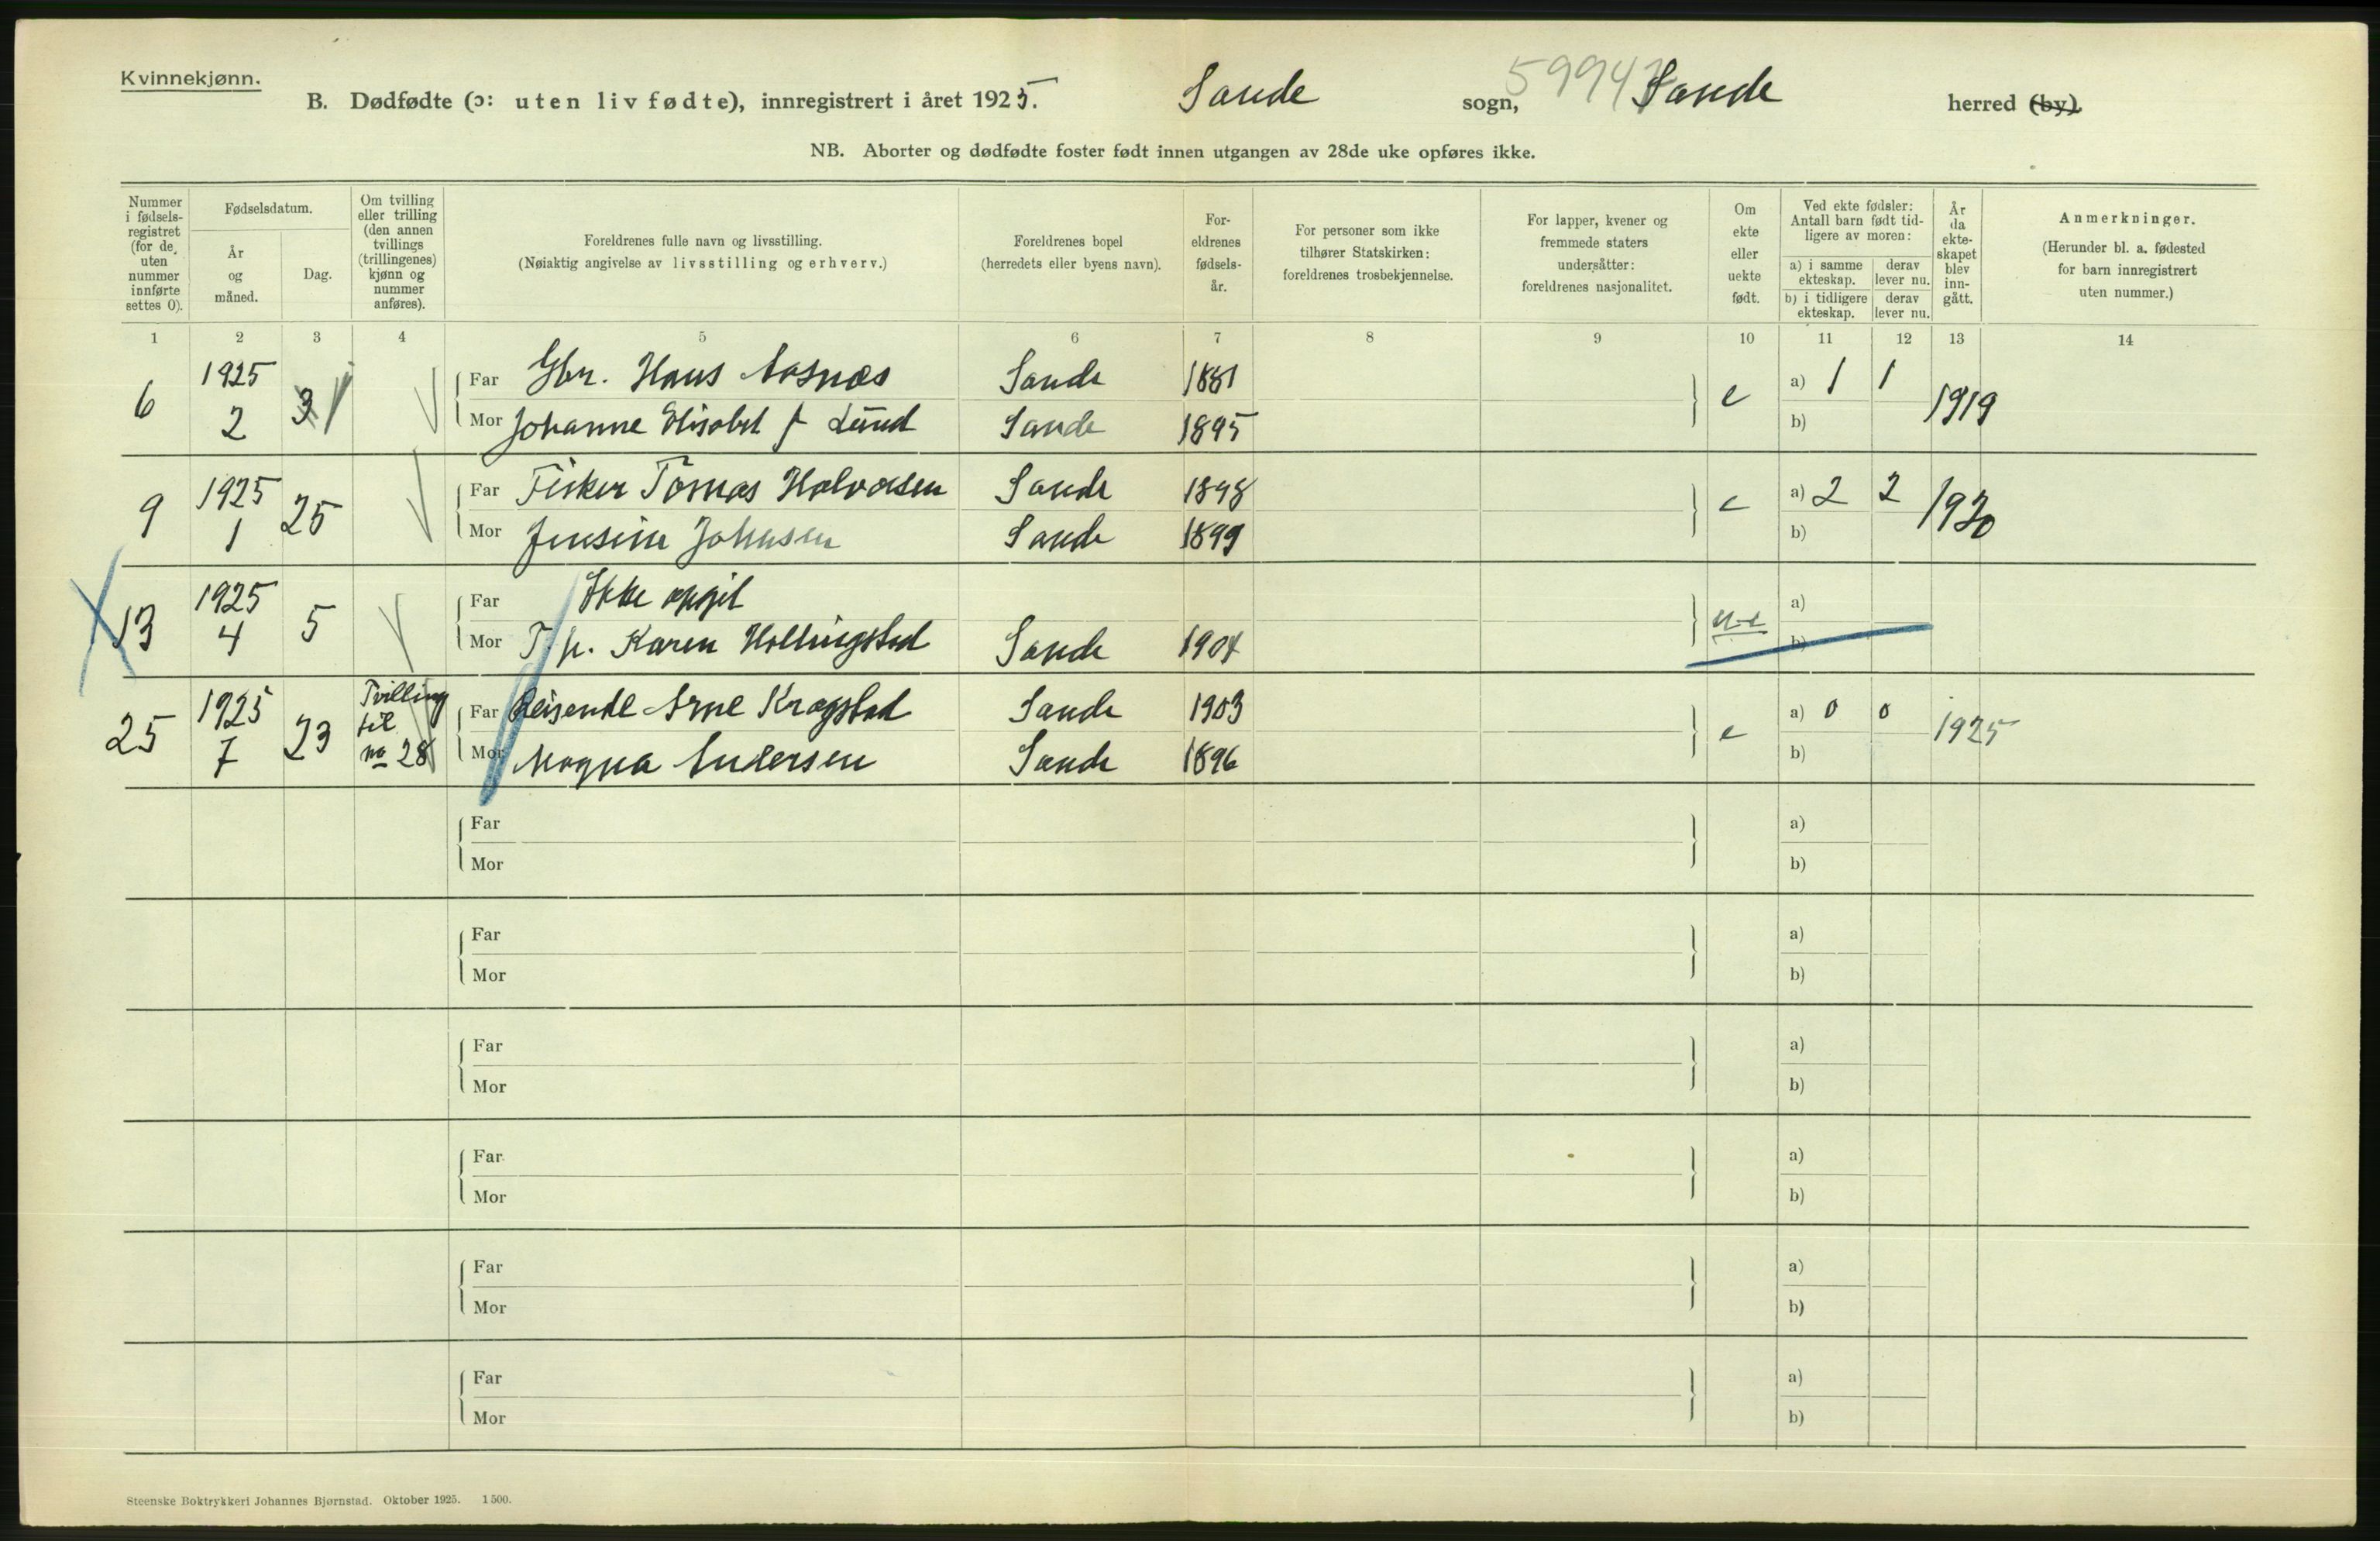 Kvinnekjønn.
B. Dødfødte (ɔ: uten liv fødte), innregistrert i året 1925. Sande sogn, Sande herred (by).
NB. Aborter og dødfødte foster født innen utgangen av 28de uke opføres ikke.
Nummer i fødsels-registret (for de uten nummer innførte settes 0).
Fødselsdatum.
År og måned.
Dag.
Om tvilling eller trilling (den annen tvillings (trillingenes) kjønn og nummer anføres).
Foreldrenes fulle navn og livsstilling.
(Nøiaktig angivelse av livsstilling og erhverv.)
Foreldrenes bopel
(herredets eller byens navn).
For-eldrenes fødsels-år.
For personer som ikke tilhører Statskirken: foreldrenes trosbekjennelse.
For lapper, kvener og fremmede staters undersåtter: foreldrenes nasjonalitet.
Om ekte eller uekte født.
Ved ekte fødsler: Antall barn født tid-ligere av moren:
a) i samme ekteskap. derav lever nu.
b) i tidligere ekteskap. derav lever nu.
År da ekte-skapet blev inn-gått.
Anmerkninger.
(Herunder bl. a. fødested for barn innregistrert uten nummer.)
1 2 3 4 5 6 7 8 9 10 11 12 13 14
6 1925 2 3 Far Gbr. Hans Aasnæs Sande 1881 e a) 1 1 1919
Mor Johanne Elisabet f. Lund Sande 1895 b)
9 1925 1 25 Far Fisker Tomas Halvorsen Sande 1898 e a) 2 2 1920
Mor Jensine Johnsen Sande 1899 b)
13 1925 4 5 Far Ikke opgit u-e a)
Mor T.p. Karen Hollingstad Sande 1904 b)
25 1925 7 23 Tvilling til no 28 Far Reisende Arne Kragstad Sande 1903 e a) 0 0 1925
Mor Magna Andersen Sande 1896 b)
Far a)
Mor b)
Far a)
Mor b)
Far a)
Mor b)
Far a)
Mor b)
Far a)
Mor b)
Far a)
Mor b)
Steenske Boktrykkeri Johannes Bjørnstad. Oktober 1925. 1500.